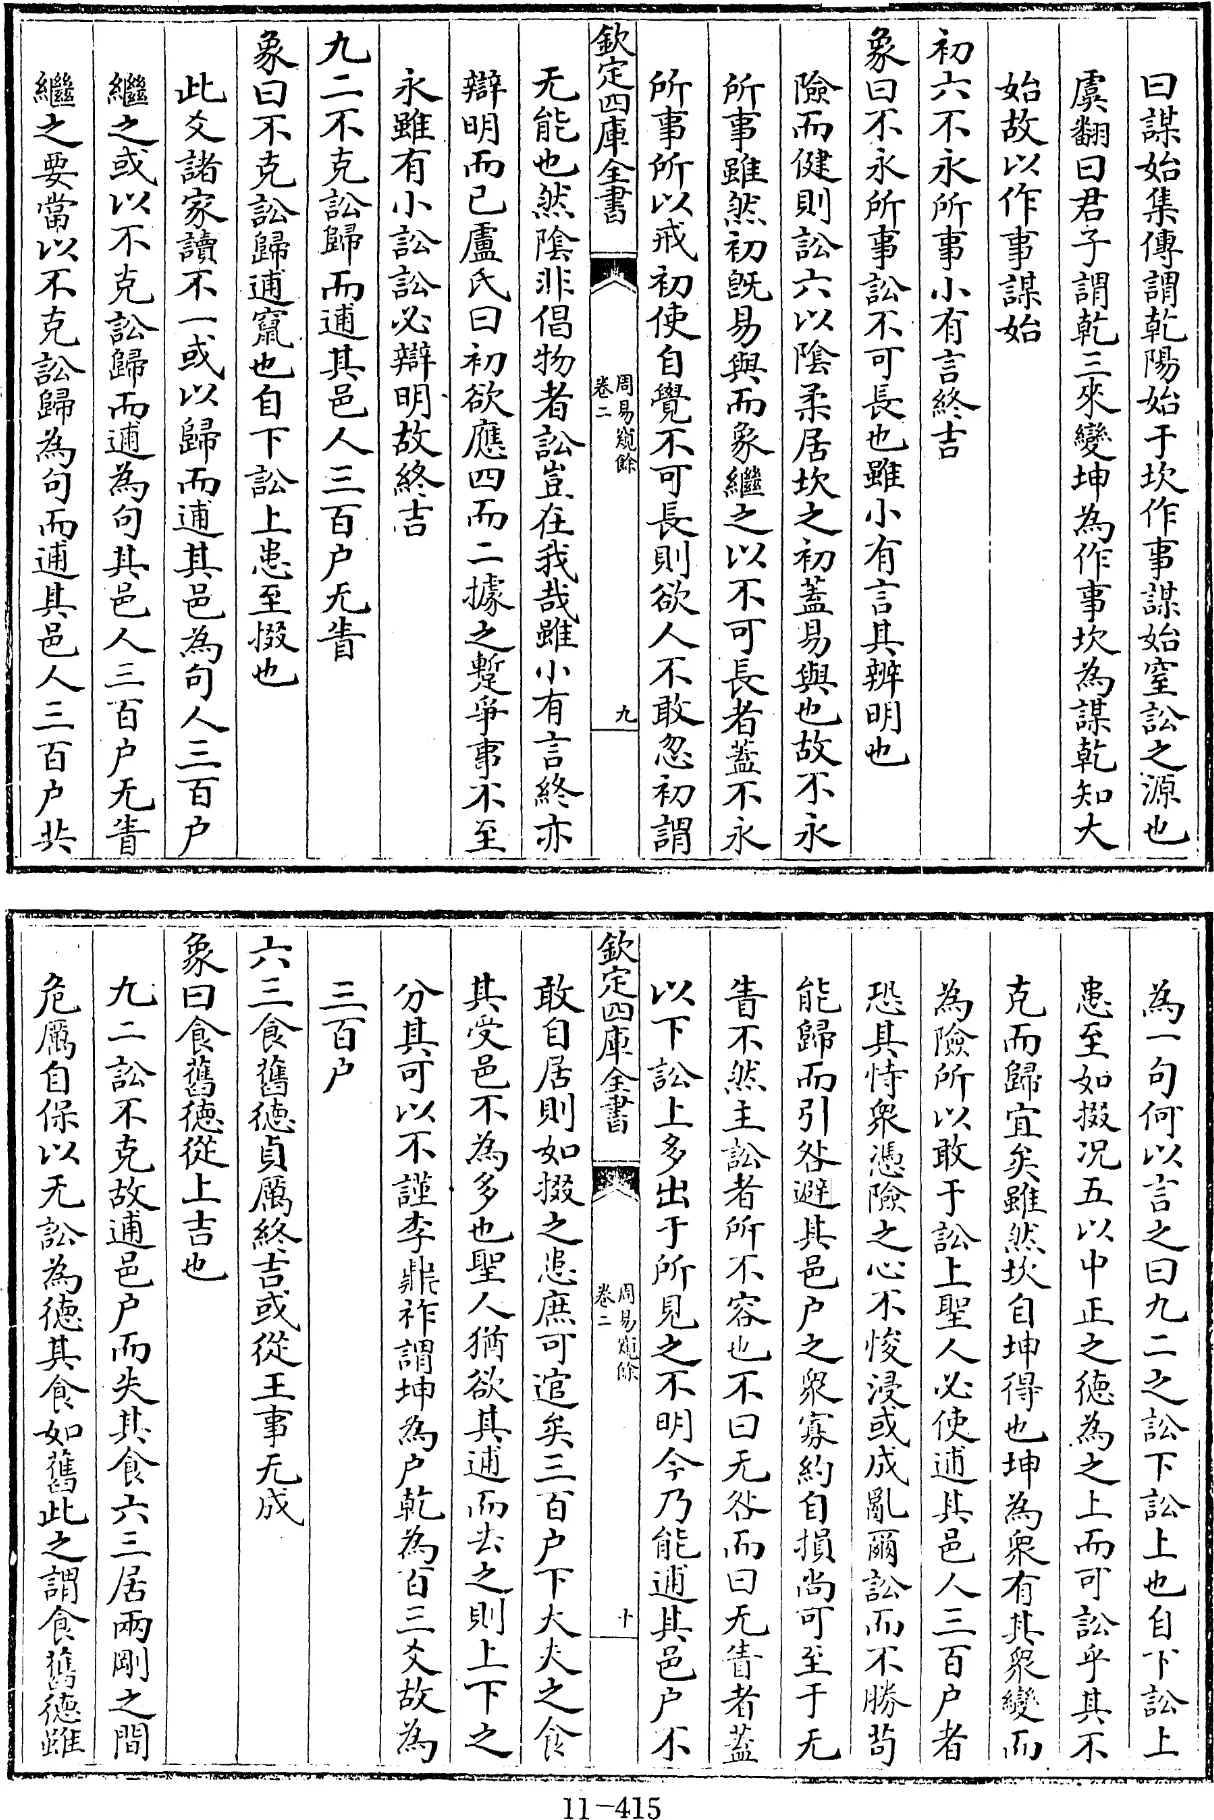 曰謀始集傳謂乾陽始于坎作事謀始窒訟之源也
虞翻曰君子謂乾三來變坤為作事坎為謀乾知大
始故以作事謀始
初六不永所事小有言終吉
象曰不永所事訟不可長也雖小有言其辨明也
險而健則訟六以陰柔居坎之初蓋易與也故不永
所事雖然初既易與而象繼之以不可長者蓋不永
所事所以戒初使自覺不可長則欲人不敢忽初謂
欽定四庫全書
周易窺餘
卷二
九
无能也然陰非倡物者訟豈在我哉雖小有言終亦
辯明而已盧氏曰初欲應四而二據之蹔爭事不至
永雖有小訟訟必辯明故終吉
九二不克訟歸而逋其邑人三百户无眚
象曰不克訟歸逋竄也自下訟上患至掇也
此爻諸家讀不一或以歸而逋其邑為句人三百户
繼之或以不克訟歸而逋為句其邑人三百户无眚
繼之要當以不克訟歸為句而逋其邑人三百户共
為一句何以言之曰九二之訟下訟上也自下訟上
患至如掇况五以中正之德為之上而可訟乎其不
克而歸宜矣雖然坎自坤得也坤為衆有其衆變而
為險所以敢于訟上聖人必使逋其邑人三百户者
恐其恃衆憑險之心不悛浸或成亂爾訟而不勝苟
能歸而引咎避其邑户之衆寡約自損尚可至于无
眚不然主訟者所不容也不曰无咎而曰无眚者蓋
以下訟上多出于所見之不明今乃能逋其邑户不
欽定四庫全書
周易窺餘
卷二
十
敢自居則如掇之患庶可逭矣三百户下大夫之食
其受邑不為多也聖人猶欲其逋而去之則上下之
分其可以不謹李鼎祚謂坤為户乾為百三爻故為
三百户
六三食舊德貞厲終吉或從王事无成
象曰食舊德從上吉也
九二訟不克故逋邑户而失其食六三居兩剛之間
危厲自保以无訟為德其食如舊此之謂食舊德雖
11-415